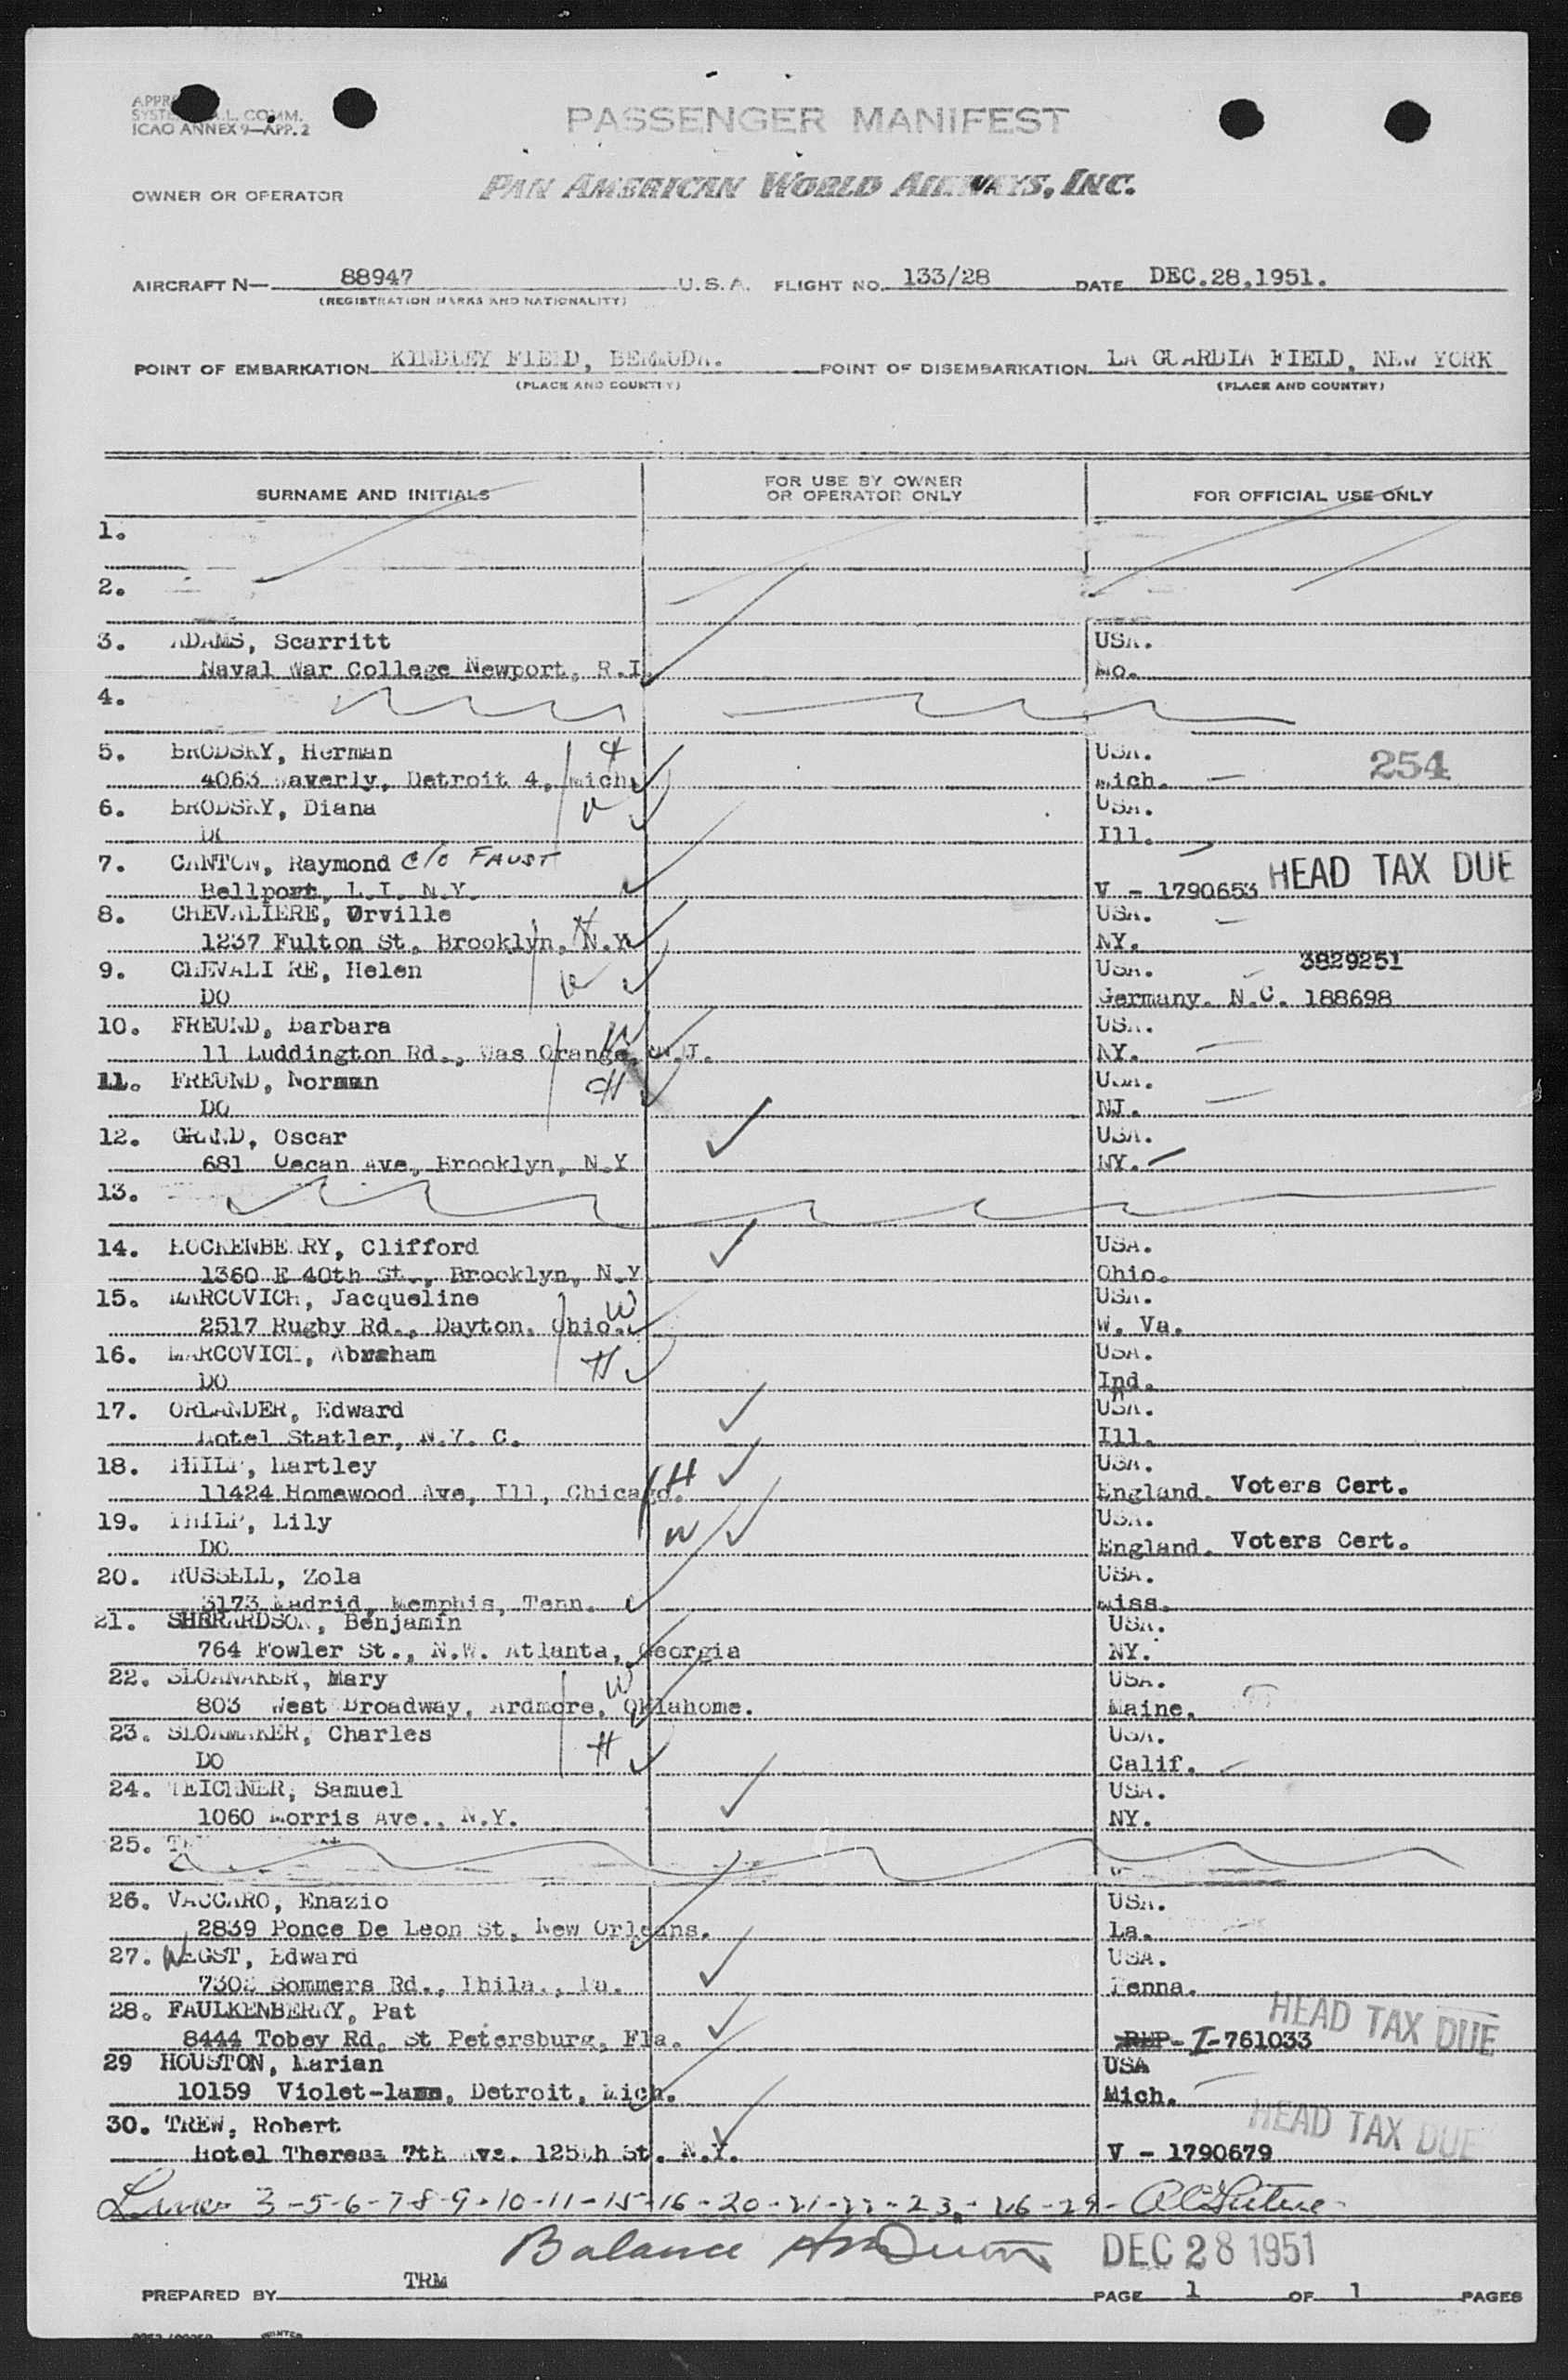 ICAO ANNEX 9—APP. 2
PASSENGER MANIFEST
OWNER OR OPERATOR PAN AMERICAN WORLD AIRWAYS, INC.
AIRCRAFT N— 88947 U.S.A. FLIGHT NO. 133/28 DATE DEC.28,1951.
(REGISTRATION MARKS AND NATIONALITY)
POINT OF EMBARKATION KINDLEY FIELD, BERMUDA. POINT OF DISEMBARKATION LA GUARDIA FIELD, NEW YORK
(PLACE AND COUNTRY) (PLACE AND COUNTRY)
SURNAME AND INITIALS FOR USE BY OWNER OR OPERATOR ONLY FOR OFFICIAL USE ONLY
1.
2.
3. ADAMS, Scarritt USA.
Naval War College Newport, R.I. Mo.
4.
5. BRODSKY, Herman USA. 254
4063 Waverly, Detroit 4, Mich. Mich.
6. BRODSKY, Diana USA.
DO Ill.
7. CANTON, Raymond c/o FAUST HEAD TAX DUE
Bellport, L.I. N.Y. V - 1790653
8. CHEVALIERE, Orville H USA.
1237 Fulton St, Brooklyn, N.Y. NY.
9. CHEVALI RE, Helen USA. 3829251
DO Germany. N.C. 188698
10. FREUND, Barbara W USA.
11 Luddington Rd., Was Orange, N.J. NY.
11. FREUND, Norman USA.
DO H NJ.
12. GRAND, Oscar USA.
681 Ocean Ave, Brooklyn, N.Y NY.
13.
14. HOCKENBERRY, Clifford USA.
1360 E 40th St., Brooklyn, N.Y Ohio.
15. MARCOVICH, Jacqueline W USA.
2517 Rugby Rd., Dayton. Ohio. W. Va.
16. MARCOVICH, Abraham H USA.
DO Ind.
17. ORLANDER, Edward USA.
Hotel Statler, N.Y. C. Ill.
18. PHILP, Hartley H USA.
11424 Homewood Ave, Ill, Chicago. England. Voters Cert.
19. PHILP, Lily W USA.
DO England. Voters Cert.
20. RUSSELL, Zola USA.
3173 Madrid, Memphis, Tenn. Miss.
21. SHERARDSON, Benjamin USA.
764 Fowler St., N.W. Atlanta, Georgia NY.
22. SLOANAKER, Mary W USA.
803 West Broadway, Ardmore, Oklahome. Maine.
23. SLOAMAKER, Charles H USA.
DO Calif.
24. TEICHNER, Samuel USA.
1060 Morris Ave., N.Y. NY.
25.
26. VACCARO, Enazio USA.
2839 Ponce De Leon St, New Orleans. La.
27. WEGST, Edward USA.
Sommers Rd., Phila., Pa. Penna.
28. FAULKENBERRY, Pat HEAD TAX DUE
8444 Tobey Rd, St Petersburg, Fla. REP-I-761033
29 HOUSTON, Marian USA
10159 Violet-lane, Detroit, Mich. Mich.
30. TREW, Robert HEAD TAX DUE
Hotel Theresa 7th Ave. 125th St. N.Y. V - 1790679
Lines 3-5-6-7-8-9-10-11-15-16-20-21-22-23-26-29-
Balance DEC 28 1951
PREPARED BY TRM PAGE 1 OF 1 PAGES